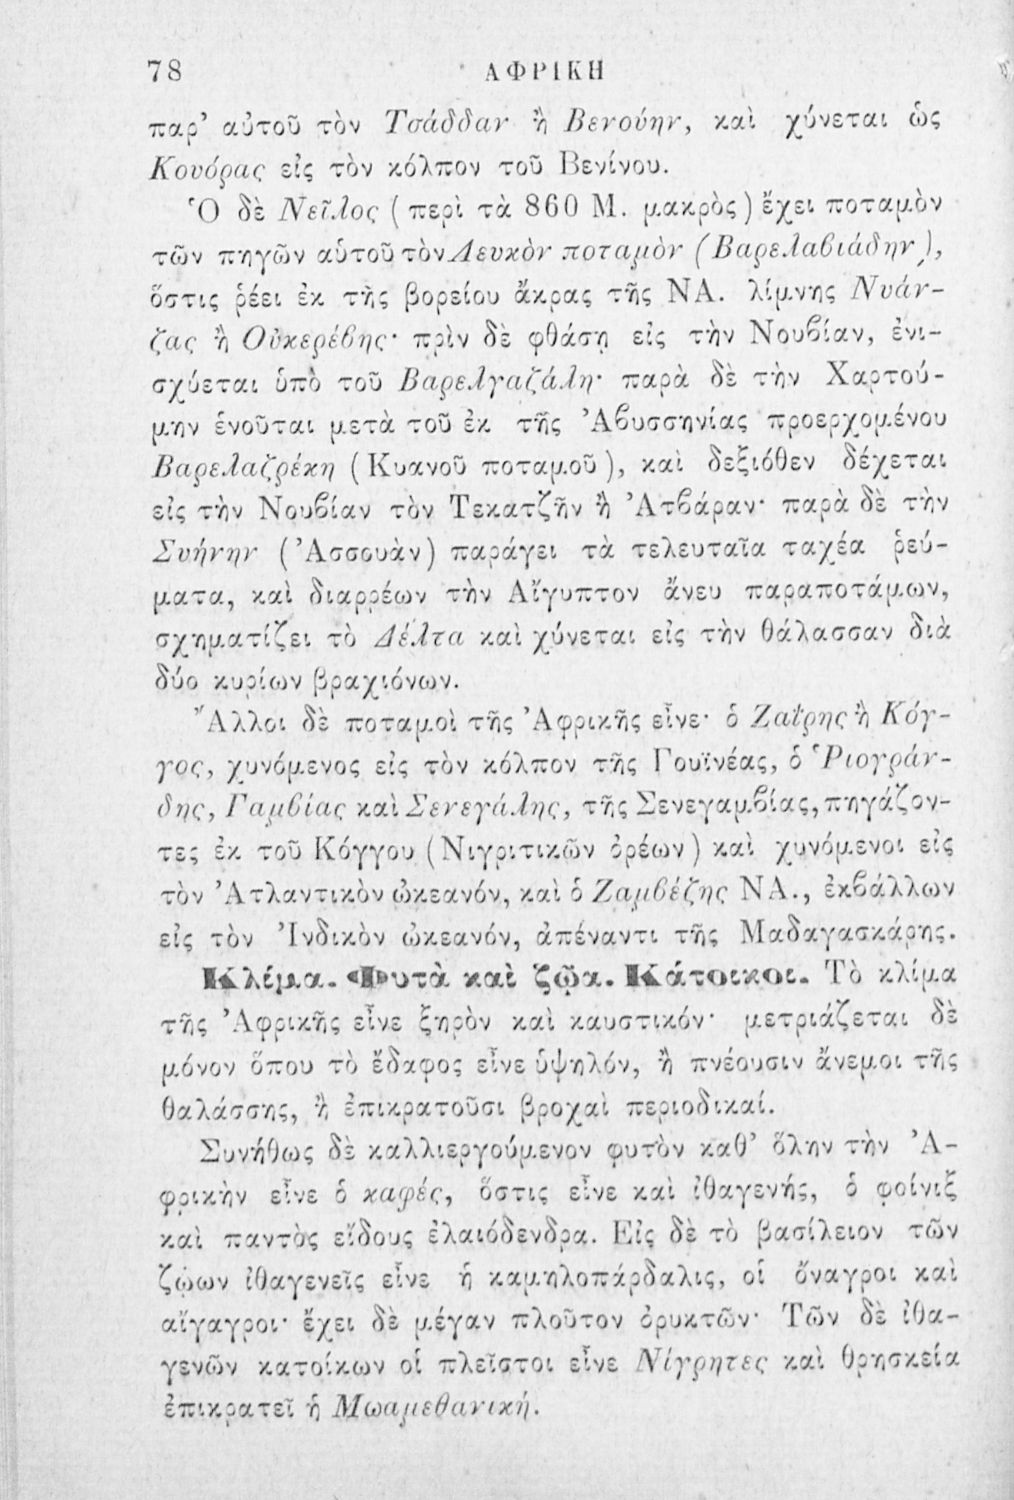 78 ΑΦΡΙΚΗ
παρ’ αὐτοῦ τὸν Τσάδδαν ἢ Βενούην, καὶ χύνεται ὡς
Κουόρας εἰς τὸν κόλπον τοῦ Βενίνου.
Ὁ δὲ Νεῖλος (περὶ τὰ 860 Μ. μακρὸς) ἔχει ποταμὸν
τῶν πηγῶν αὑτοῦ τὸν Λευκὸν ποταμὸν (Βαρελαβιάδην),
ὅστις ῥέει ἐκ τῆς βορείου ἄκρας τῆς ΝΑ. λίμνης Νυάν-
ζας ἢ Οὐκερέβης· πρὶν δὲ φθάσῃ εἰς τὴν Νουβίαν, ἐνι-
σχύεται ὑπὸ τοῦ Βαρελγαζάλη· παρὰ δὲ τὴν Χαρτού-
μην ἑνοῦται μετὰ τοῦ ἐκ τῆς Ἀβυσσηνίας προερχομένου
Βαρελαζρέκη (Κυανοῦ ποταμοῦ), καὶ δεξιόθεν δέχεται
εἰς τὴν Νουβίαν τὸν Τεκατζῆν ἢ Ἀτβάραν· παρὰ δὲ τὴν
Συήνην (Ἀσσουὰν) παράγει τὰ τελευταῖα ταχέα ῥεύ-
ματα, καὶ διαρρέων τὴν Αἴγυπτον ἄνευ παραποτάμων,
σχηματίζει τὸ Δέλτα καὶ χύνεται εἰς τὴν θάλασσαν διὰ
δύο κυρίων βραχιόνων.
Ἄλλοι δὲ ποταμοὶ τῆς Ἀφρικῆς εἶνε· ὁ Ζαΐρης ἢ Κόγ-
γος, χυνόμενος εἰς τὸν κόλπον τῆς Γουϊνέας, ὁ Ῥιογράν-
δης, Γαμβίας καὶ Σενεγάλης, τῆς Σενεγαμβίας, πηγάζον-
τες ἐκ τοῦ Κόγγου (Νιγριτικῶν ὀρέων) καὶ χυνόμενοι εἰς
τὸν Ἀτλαντικὸν ὠκεανόν, καὶ ὁ Ζαμβέζης ΝΑ., ἐκβάλλων
εἰς τὸν Ἰνδικὸν ὠκεανόν, ἀπέναντι τῆς Μαδαγασκάρης.
Κλίμα. Φυτὰ καὶ ζῷα. Κάτοικοι. Τὸ κλίμα
τῆς Ἀφρικῆς εἶνε ξηρὸν καὶ καυστικόν· μετριάζεται δὲ
μόνον ὅπου τὸ ἔδαφος εἶνε ὑψηλόν, ἢ πνέουσιν ἄνεμοι τῆς
θαλάσσης, ἢ ἐπικρατοῦσι βροχαὶ περιοδικαί.
Συνήθως δὲ καλλιεργούμενον φυτὸν καθ’ ὅλην τὴν Ἀ-
φρικὴν εἶνε ὁ καφές, ὅστις εἶνε καὶ ἰθαγενής, ὁ φοίνιξ
καὶ παντὸς εἴδους ἐλαιόδενδρα. Εἰς δὲ τὸ βασίλειον τῶν
ζῴων ἰθαγενεῖς εἶνε ἡ καμηλοπάρδαλις, οἱ ὄναγροι καὶ
αἴγαγροι· ἔχει δὲ μέγαν πλοῦτον ὀρυκτῶν· Τῶν δὲ ἰθα-
γενῶν κατοίκων οἱ πλεῖστοι εἶνε Νίγρητες καὶ θρησκεία
ἐπικρατεῖ ἡ Μωαμεθανική.